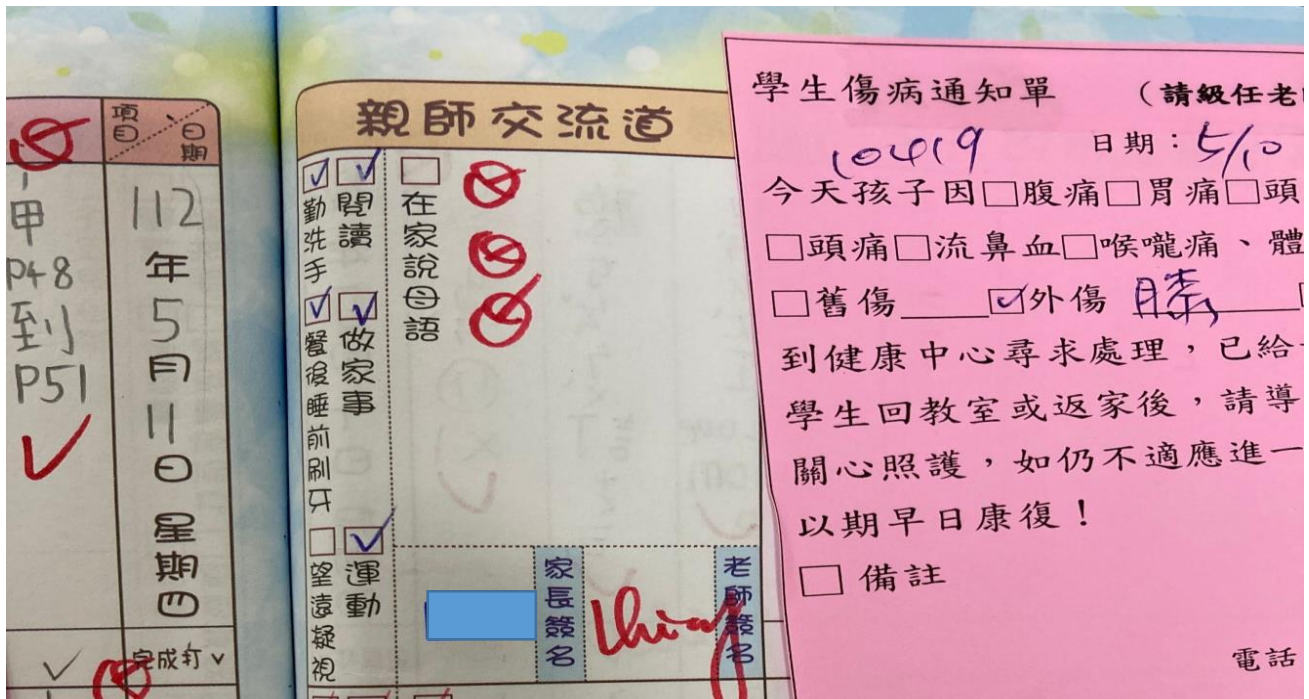 項目 日期
甲
P48
到
P51
112
年
5
月
11
日
星
期
四
完成打✓
親師交流道
☑閱讀
☑勤洗手
☑做家事
☑餐後睡前刷牙
☑運動
□望遠凝視
□在家說母語
家長簽名
老師簽名
學生傷病通知單 (請級任老
10419 日期：5/10
今天孩子因□腹痛□胃痛□頭
□頭痛□流鼻血□喉嚨痛、體
□舊傷____☑外傷 膝
到健康中心尋求處理，已給
學生回教室或返家後，請導
關心照護，如仍不適應進一
以期早日康復！
□ 備註
電話